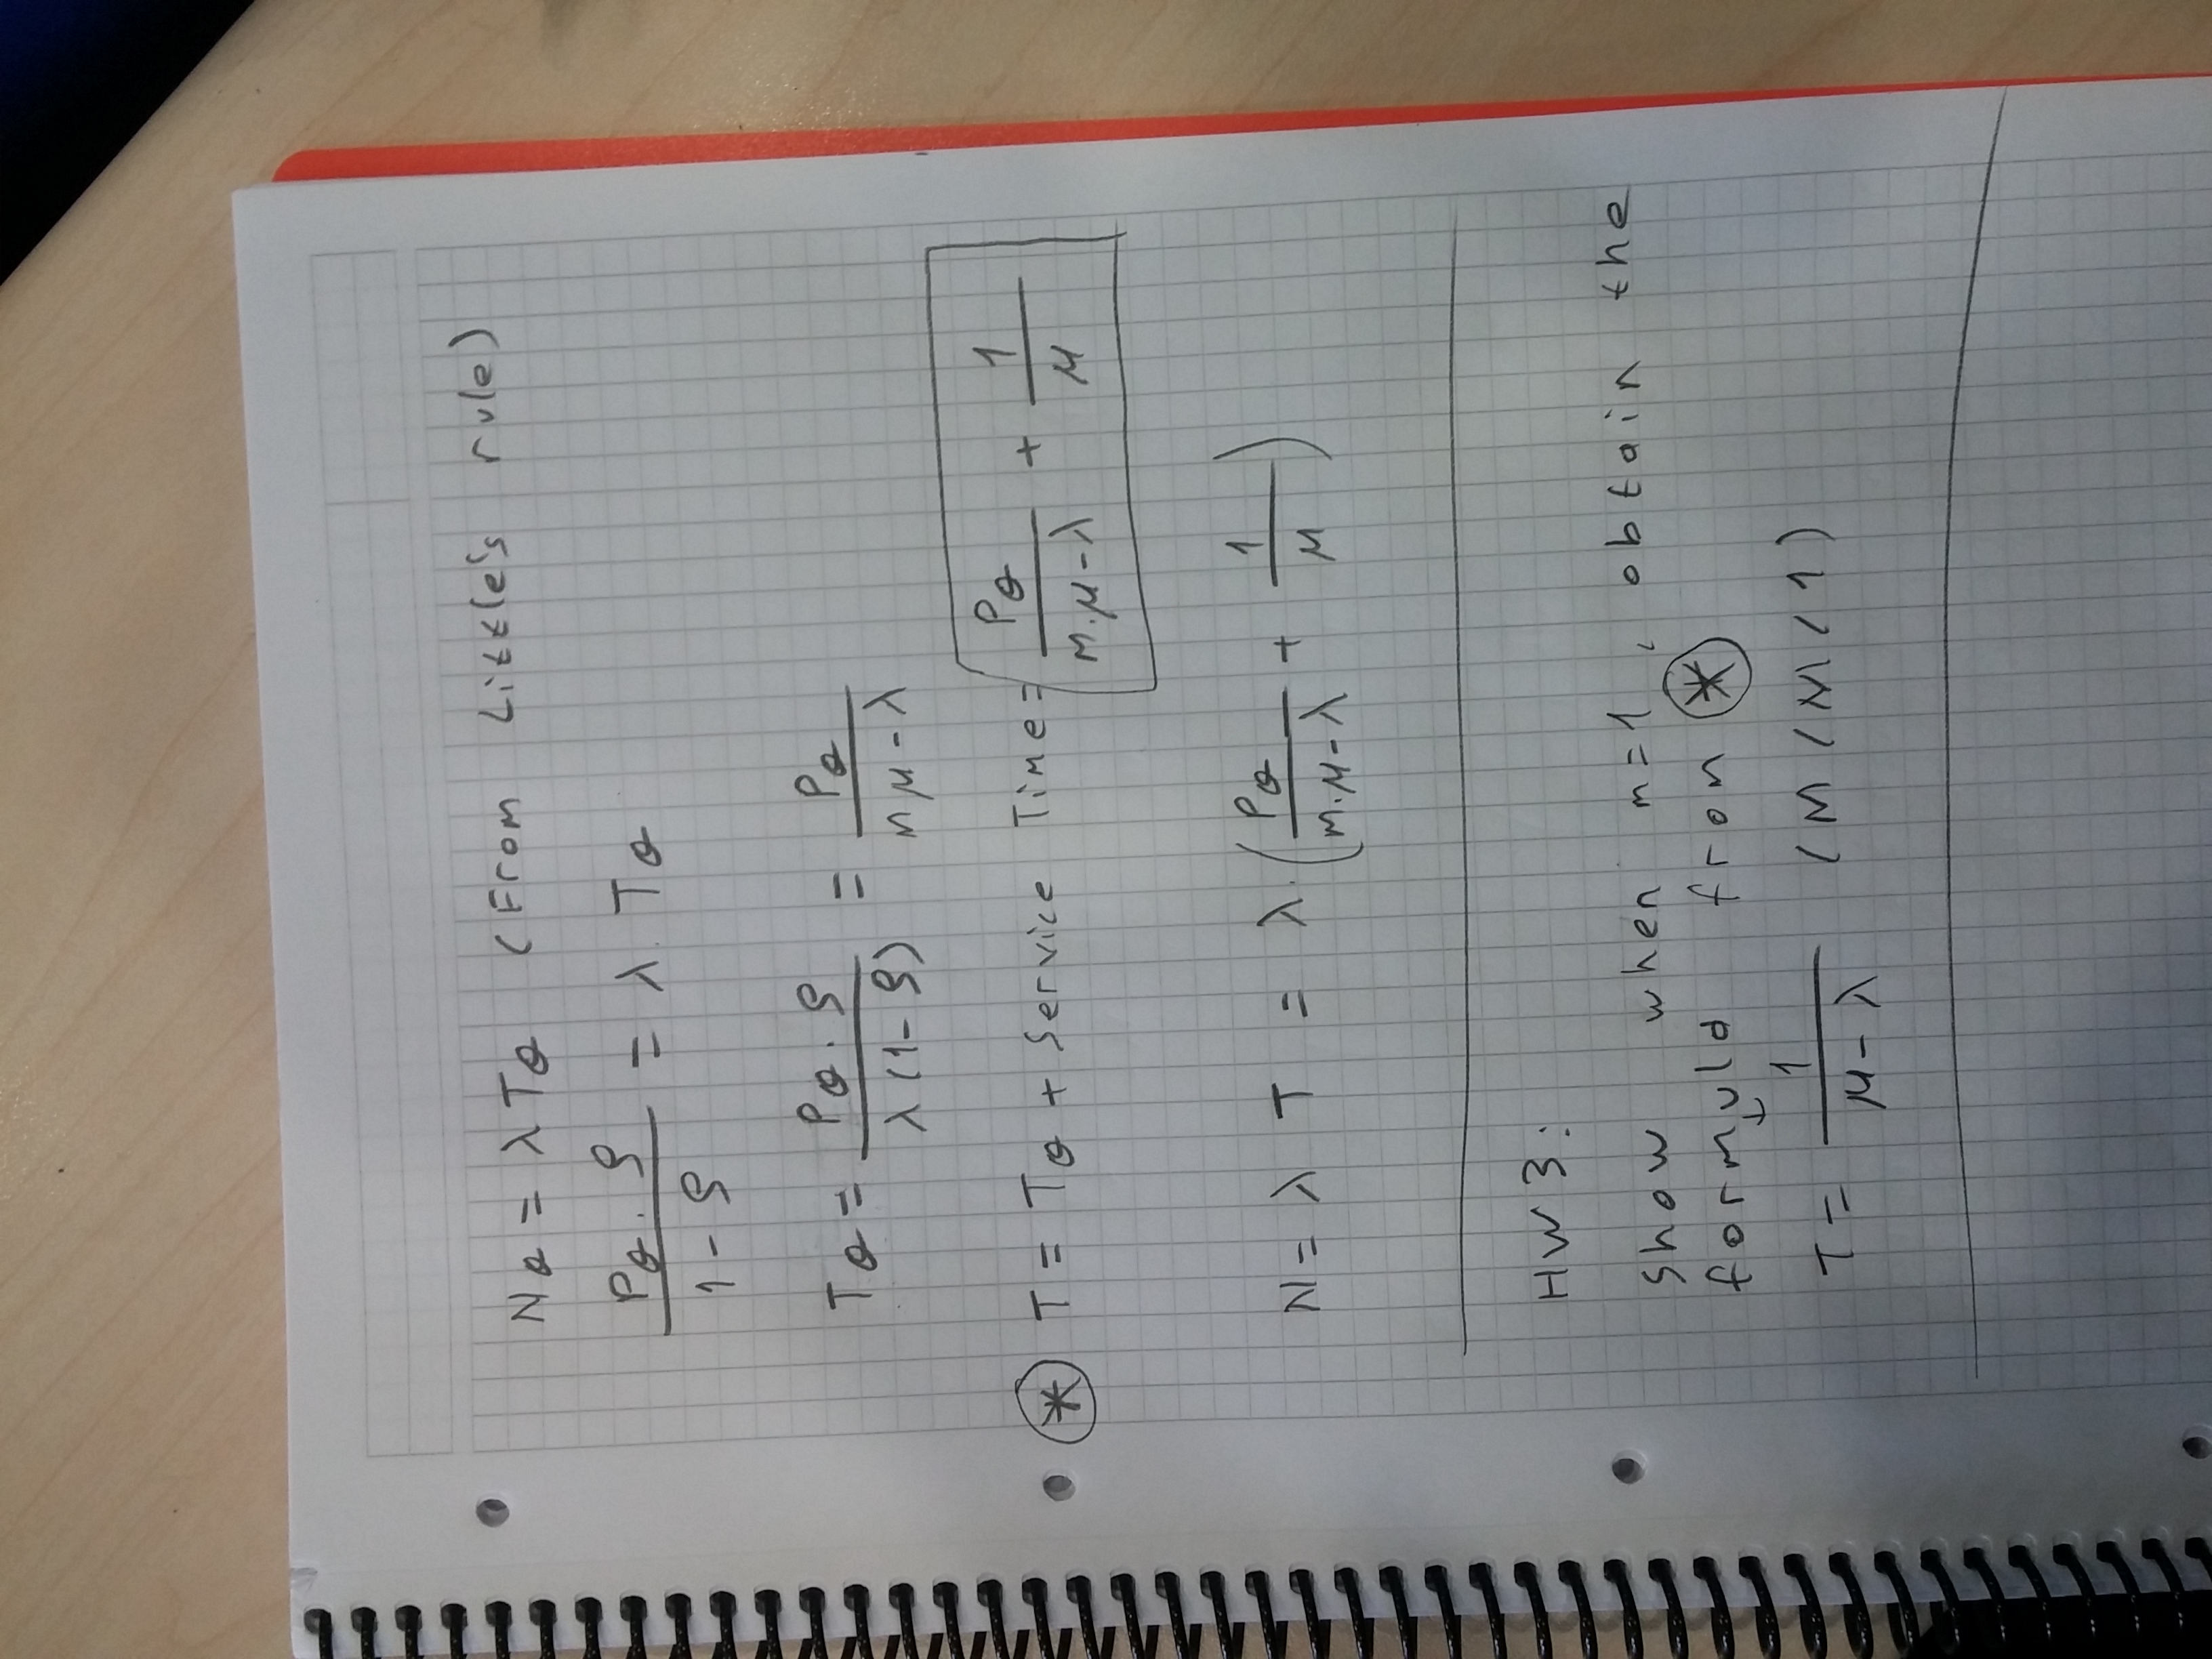 N_Q = λ T_Q (From Little's rule)
P_Q . ρ / 1 - ρ = λ . T_Q
T_Q = P_Q . ρ / λ (1 - ρ) = P_Q / m μ - λ
(*) T = T_Q + Service Time = P_Q / m . μ - λ + 1 / μ
N = λ T = λ . ( P_Q / m . μ - λ + 1 / μ )
HW 3 :
Show when m = 1 , obtain the
formula from (*)
↓
T = 1 / μ - λ (M/M/1)